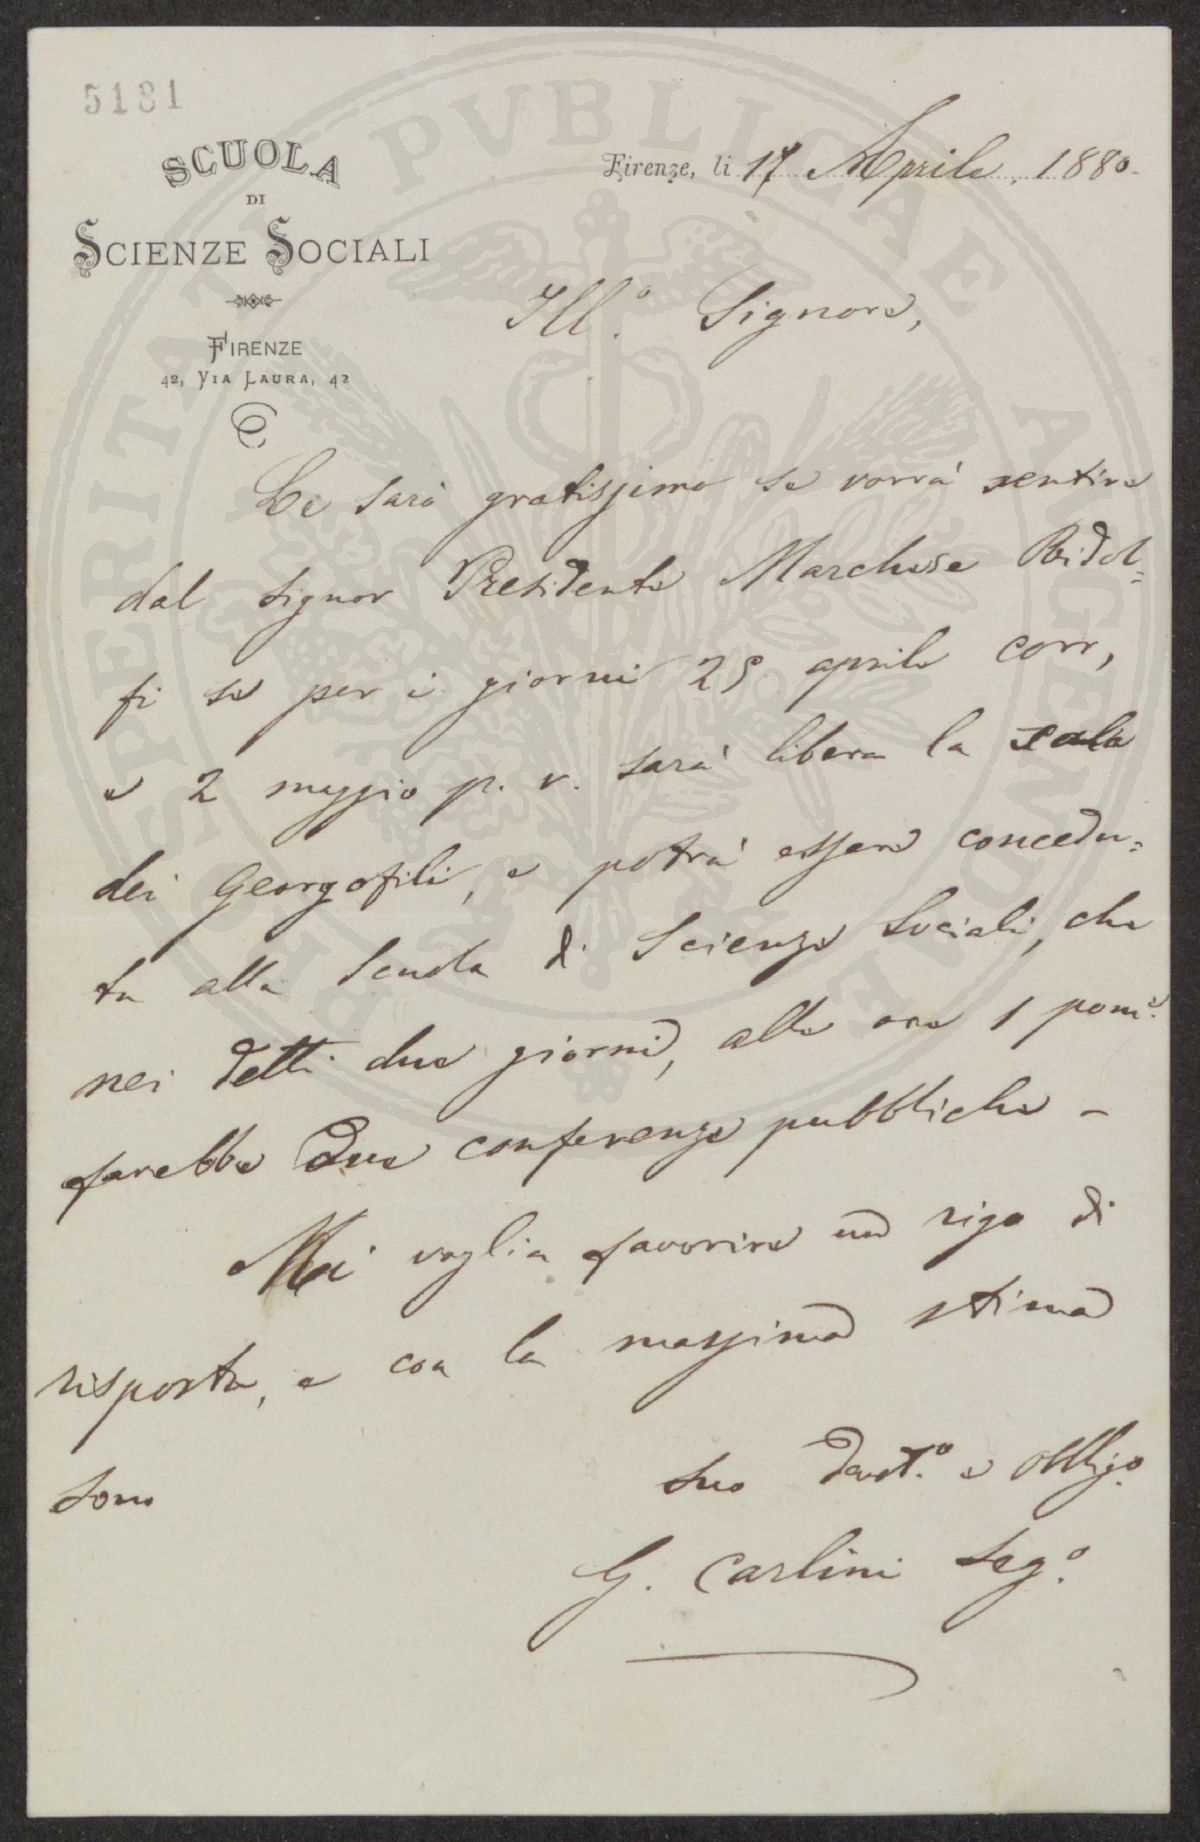 5181
SCUOLA
DI
SCIENZE SOCIALI
FIRENZE
42, VIA LAURA, 42
Firenze, li 17 Aprile, 1880.
Ill.º Signore,
Le sarò gratissimo se vorrà sentire
dal signor Presidente Marchese Ridol=
fi se per i giorni 25 aprile corr,
e 2 maggio p. v. sarà libera la sala
dei Georgofili, e potrà essere concedu=
ta alla Scuola di Scienze Sociali, che
nei detti due giorni, alle ore 1 pom.e
farebbe due conferenze pubbliche -
Mi voglia favorire un rigo di
risposta, e con la massima stima
sono
suo devot.º e obbligº
G. Carlini Seg.º
PROSPERITATI PVBLICAE AVGENDAE